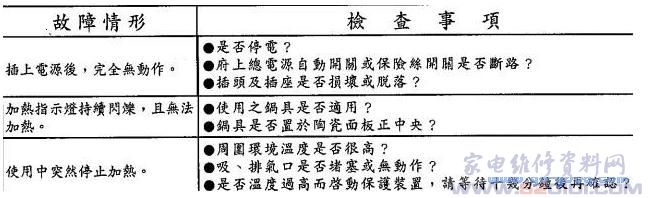 故障情形 檢查事項
插上電源後，完全無動作。
●是否停電？
●府上總電源自動開關或保險絲開關是否斷路？
●插頭及插座是否損壞或脫落？
加熱指示燈持續閃爍，且無法
加熱。
●使用之鍋具是否適用？
●鍋具是否置於陶瓷面板正中央？
使用中突然停止加熱。
●周圍環境溫度是否很高？
●吸、排氣口是否堵塞或無動作？
●是否溫度過高而啓動保護裝置，請等待十幾分鐘後再確認？
家电维修资料网